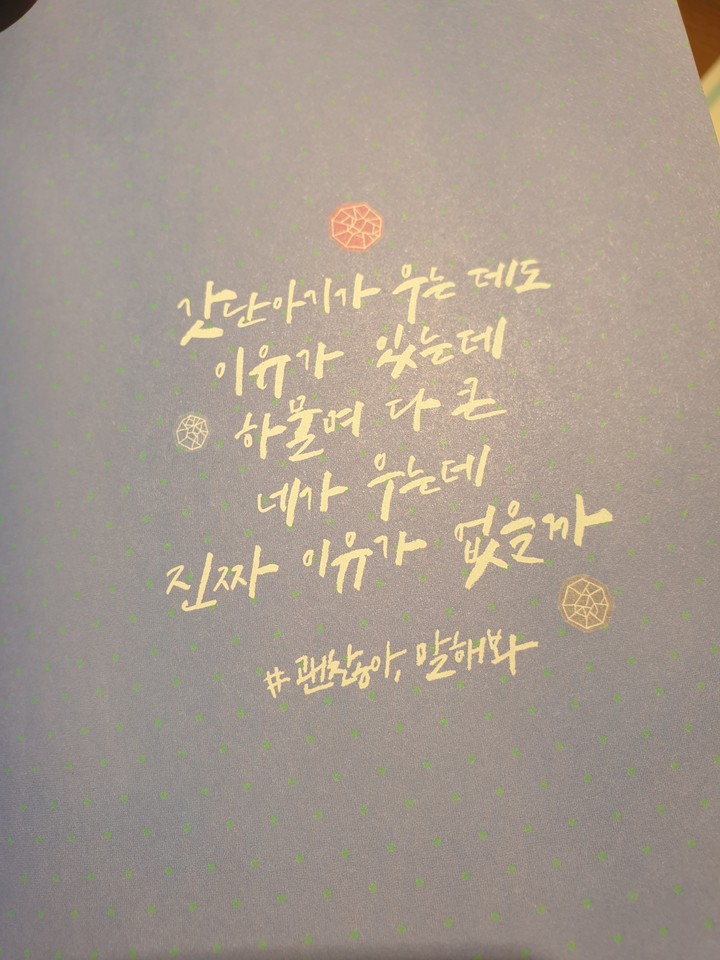 갓난아기가 우는 데도
이유가 있는데
하물며 다 큰
네가 우는데
진짜 이유가 없을까
#괜찮아, 말해봐